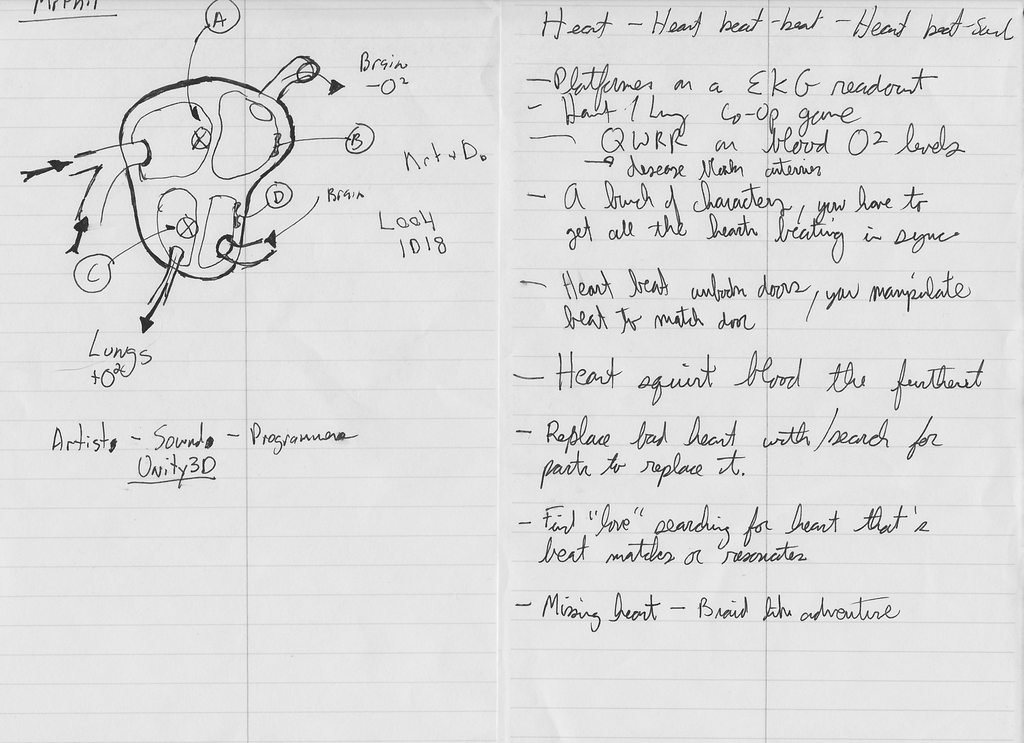 MrPhil
A
Brain
-O²
B
Art + D.
D
Brain
Look
1D18
C
Lungs
+O²
Artist. - Sound. - Programmer
Unity3D
Heart - Heart beat-beat - Heart beat-
- Platformer on a EKG readout
- Heart / Lung Co-Op game
- QWRR on blood O² levels
→ desease blocks arteries
- A bunch of characters, you have to
get all the hearts beating in sync.
- Heart beat unlocks doors, you manipulate
beat to match door
- Heart squirt blood the furtherest
- Replace bad heart with/search for
parts to replace it.
- Find "love" searching for heart that's
beat matches or resonates
- Missing heart - Braid like adventure